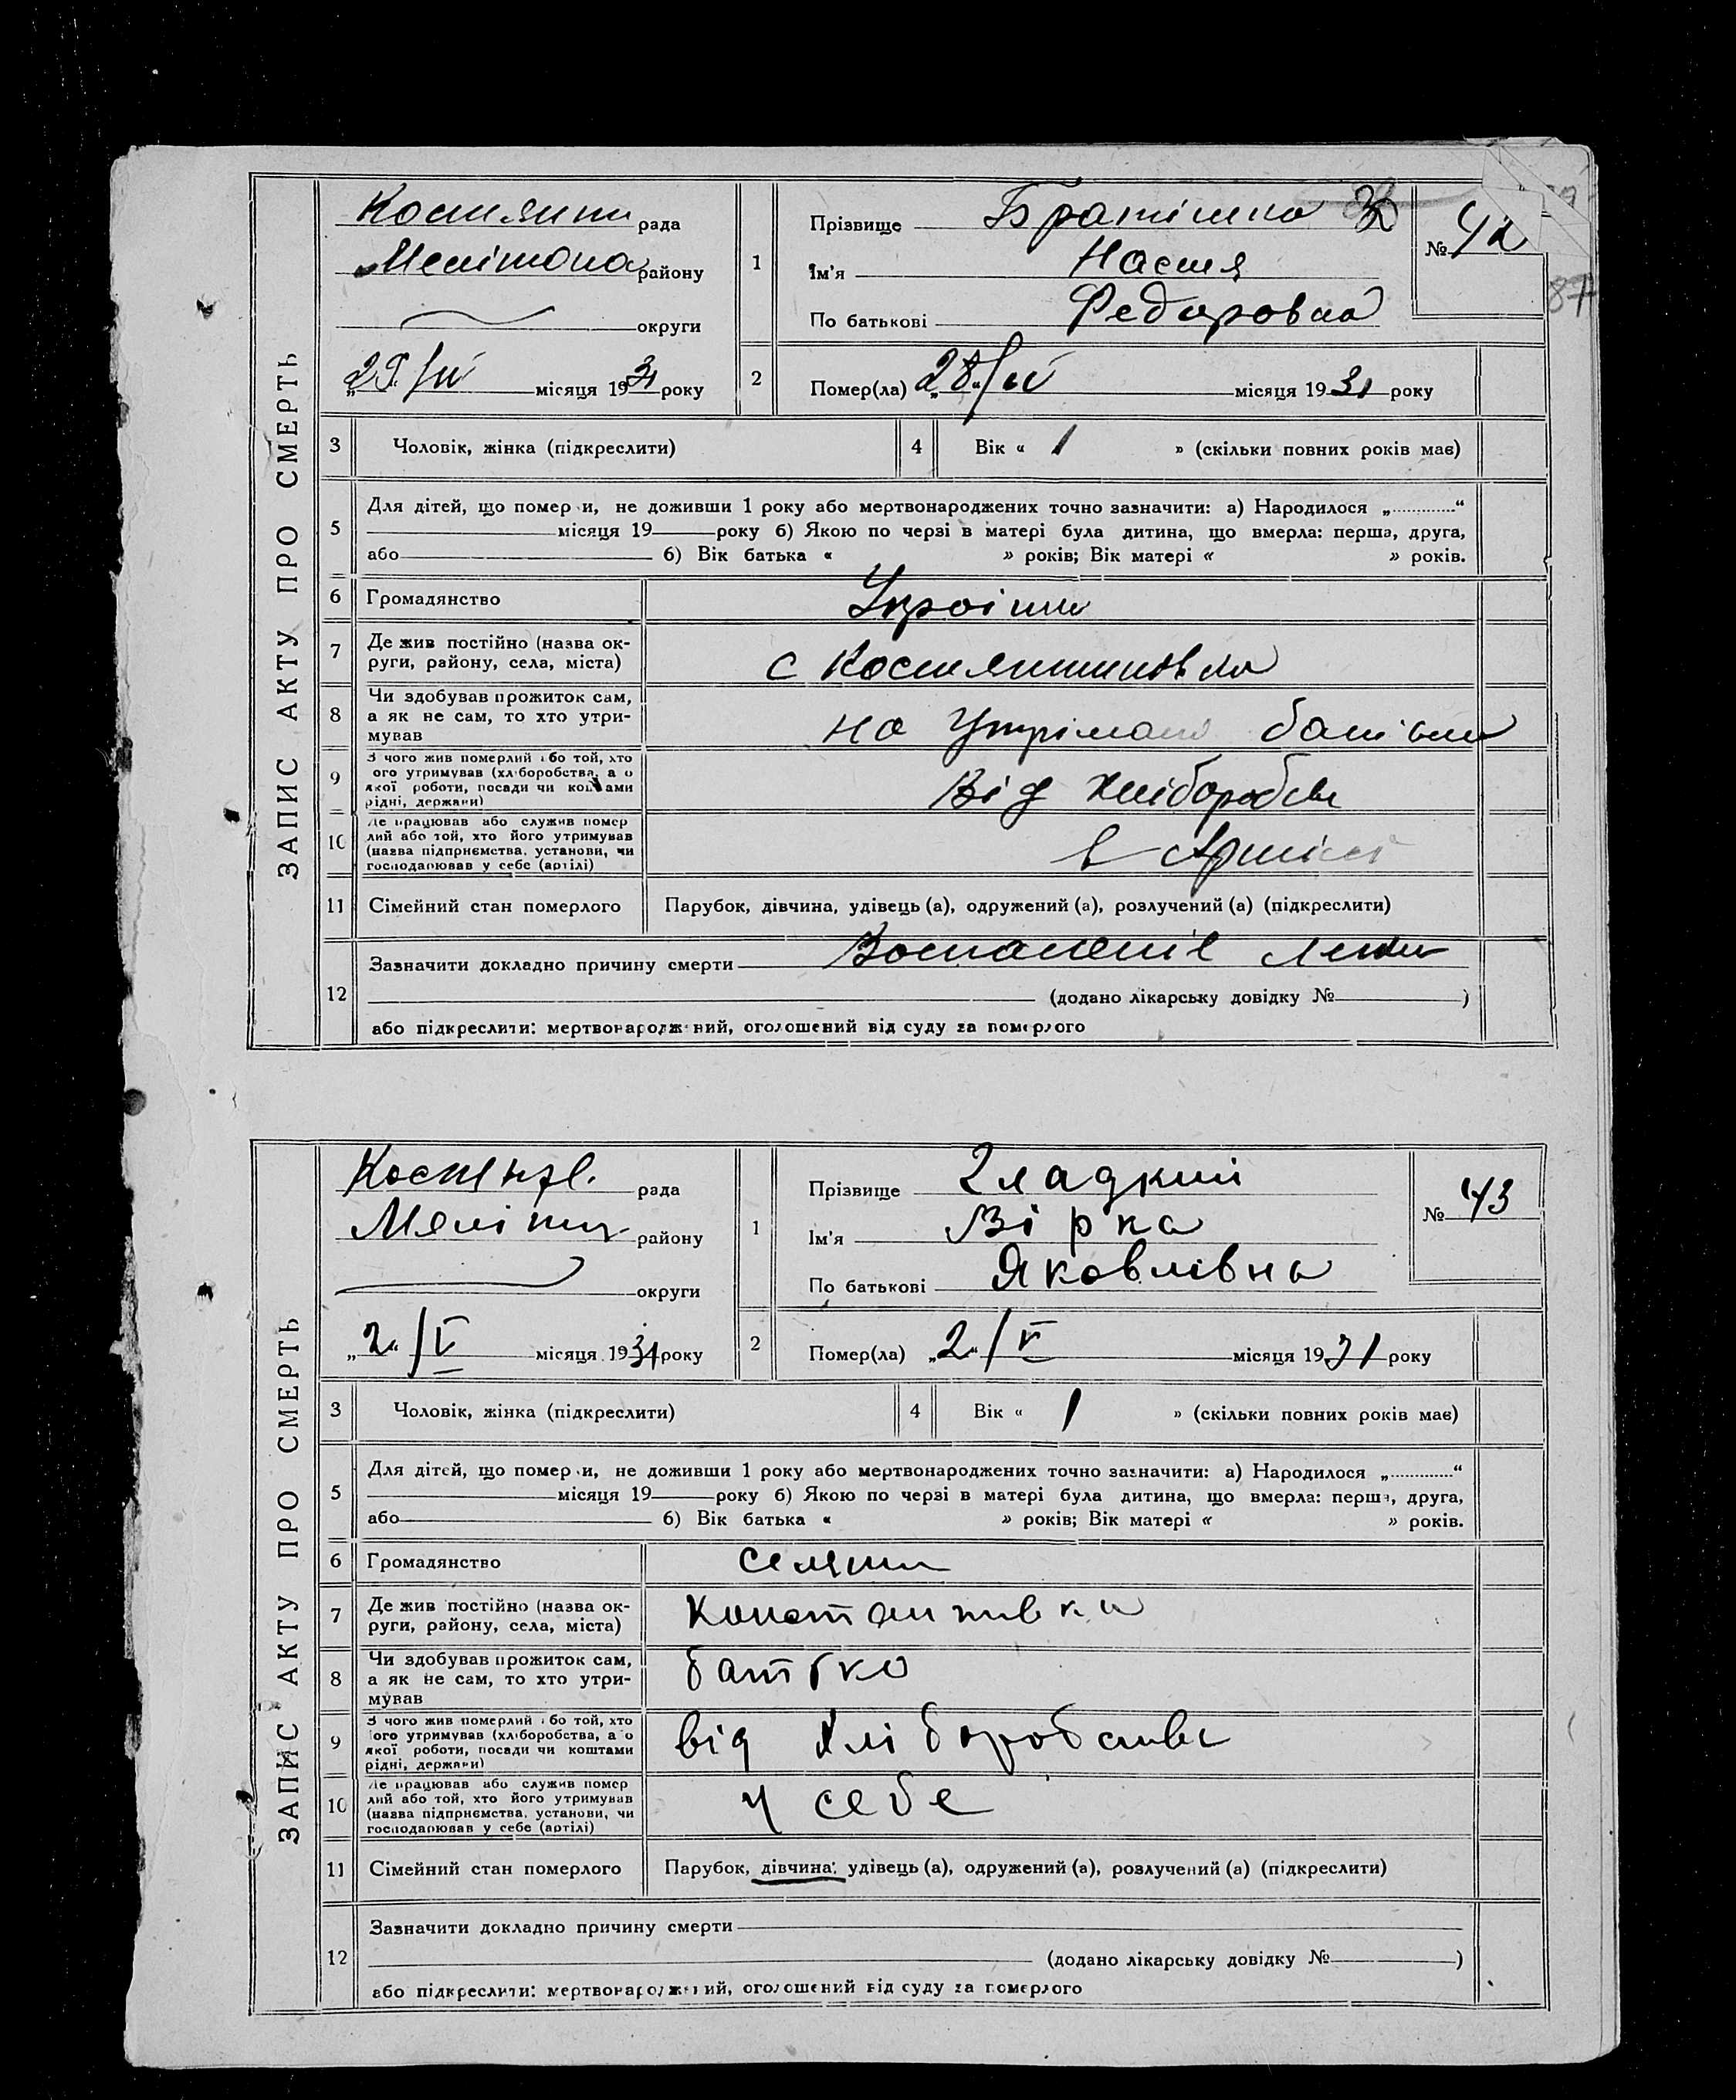 ЗАПИС АКТУ ПРО СМЕРТЬ
Костянти рада
Мелітопа району
округи
„29“/IV місяця 1931 року
1
Прізвище Братішка
Ім'я Настя
По батькові Федоровна
№ 42
87
2
Помер(ла) „28“/IV місяця 1931 року
3 Чоловік, жінка (підкреслити)
4 Вік « 1 » (скільки повних років має)
5
Для дітей, що помер и, не доживши 1 року або мертвонароджених точно зазначити: а) Народилося „............“
місяця 19 року б) Якою по черзі в матері була дитина, що вмерла: перша, друга,
або б) Вік батька « » років; Вік матері « » років.
6 Громадянство Україн
7 Де жив постійно (назва ок-
руги, району, села, міста)
с Костянтиновка
8 Чи здобував прожиток сам,
а як не сам, то хто утри-
мував
на утрімані батьків
9 З чого жив померлий або той, хто
ого утримував (хліборобства, а о
якої роботи, посади чи коштами
рідні, держави)
Від хліборобства
10 Де працював або служив помер
лий або той, хто його утримував
(назва підприємства, установи, чи
господарював у себе (артілі)
в Артілі
11 Сімейний стан померлого Парубок, дівчина, удівець (а), одружений (а), розлучений (а) (підкреслити)
12
Зазначити докладно причину смерти Воспаленіе легких
(додано лікарську довідку № )
або підкреслити: мертвонароджений, оголошений від суду за померлого
ЗАПИС АКТУ ПРО СМЕРТЬ
рада
Меліт району
округи
„2“/V місяця 1931 року
1
Прізвище Гладкий
Ім'я Вірка
По батькові Яковлівна
№ 43
2
Помер(ла) „2“/V місяця 1931 року
3 Чоловік, жінка (підкреслити)
4 Вік « 1 » (скільки повних років має)
5
Для дітей, що помер и, не доживши 1 року або мертвонароджених точно зазначити: а) Народилося „............“
місяця 19 року б) Якою по черзі в матері була дитина, що вмерла: перша, друга,
або б) Вік батька « » років; Вік матері « » років.
6 Громадянство селян
7 Де жив постійно (назва ок-
руги, району, села, міста)
Константивка
8 Чи здобував прожиток сам,
а як не сам, то хто утри-
мував
батько
9 З чого жив померлий або той, хто
ого утримував (хліборобства, а о
якої роботи, посади чи коштами
рідні, держави)
від Хліборобства
10 Де працював або служив помер
лий або той, хто його утримував
(назва підприємства, установи, чи
господарював у себе (артілі)
у себе
11 Сімейний стан померлого Парубок, дівчина, удівець (а), одружений (а), розлучений (а) (підкреслити)
12
Зазначити докладно причину смерти
(додано лікарську довідку № )
або підкреслити: мертвонароджений, оголошений від суду за померлого